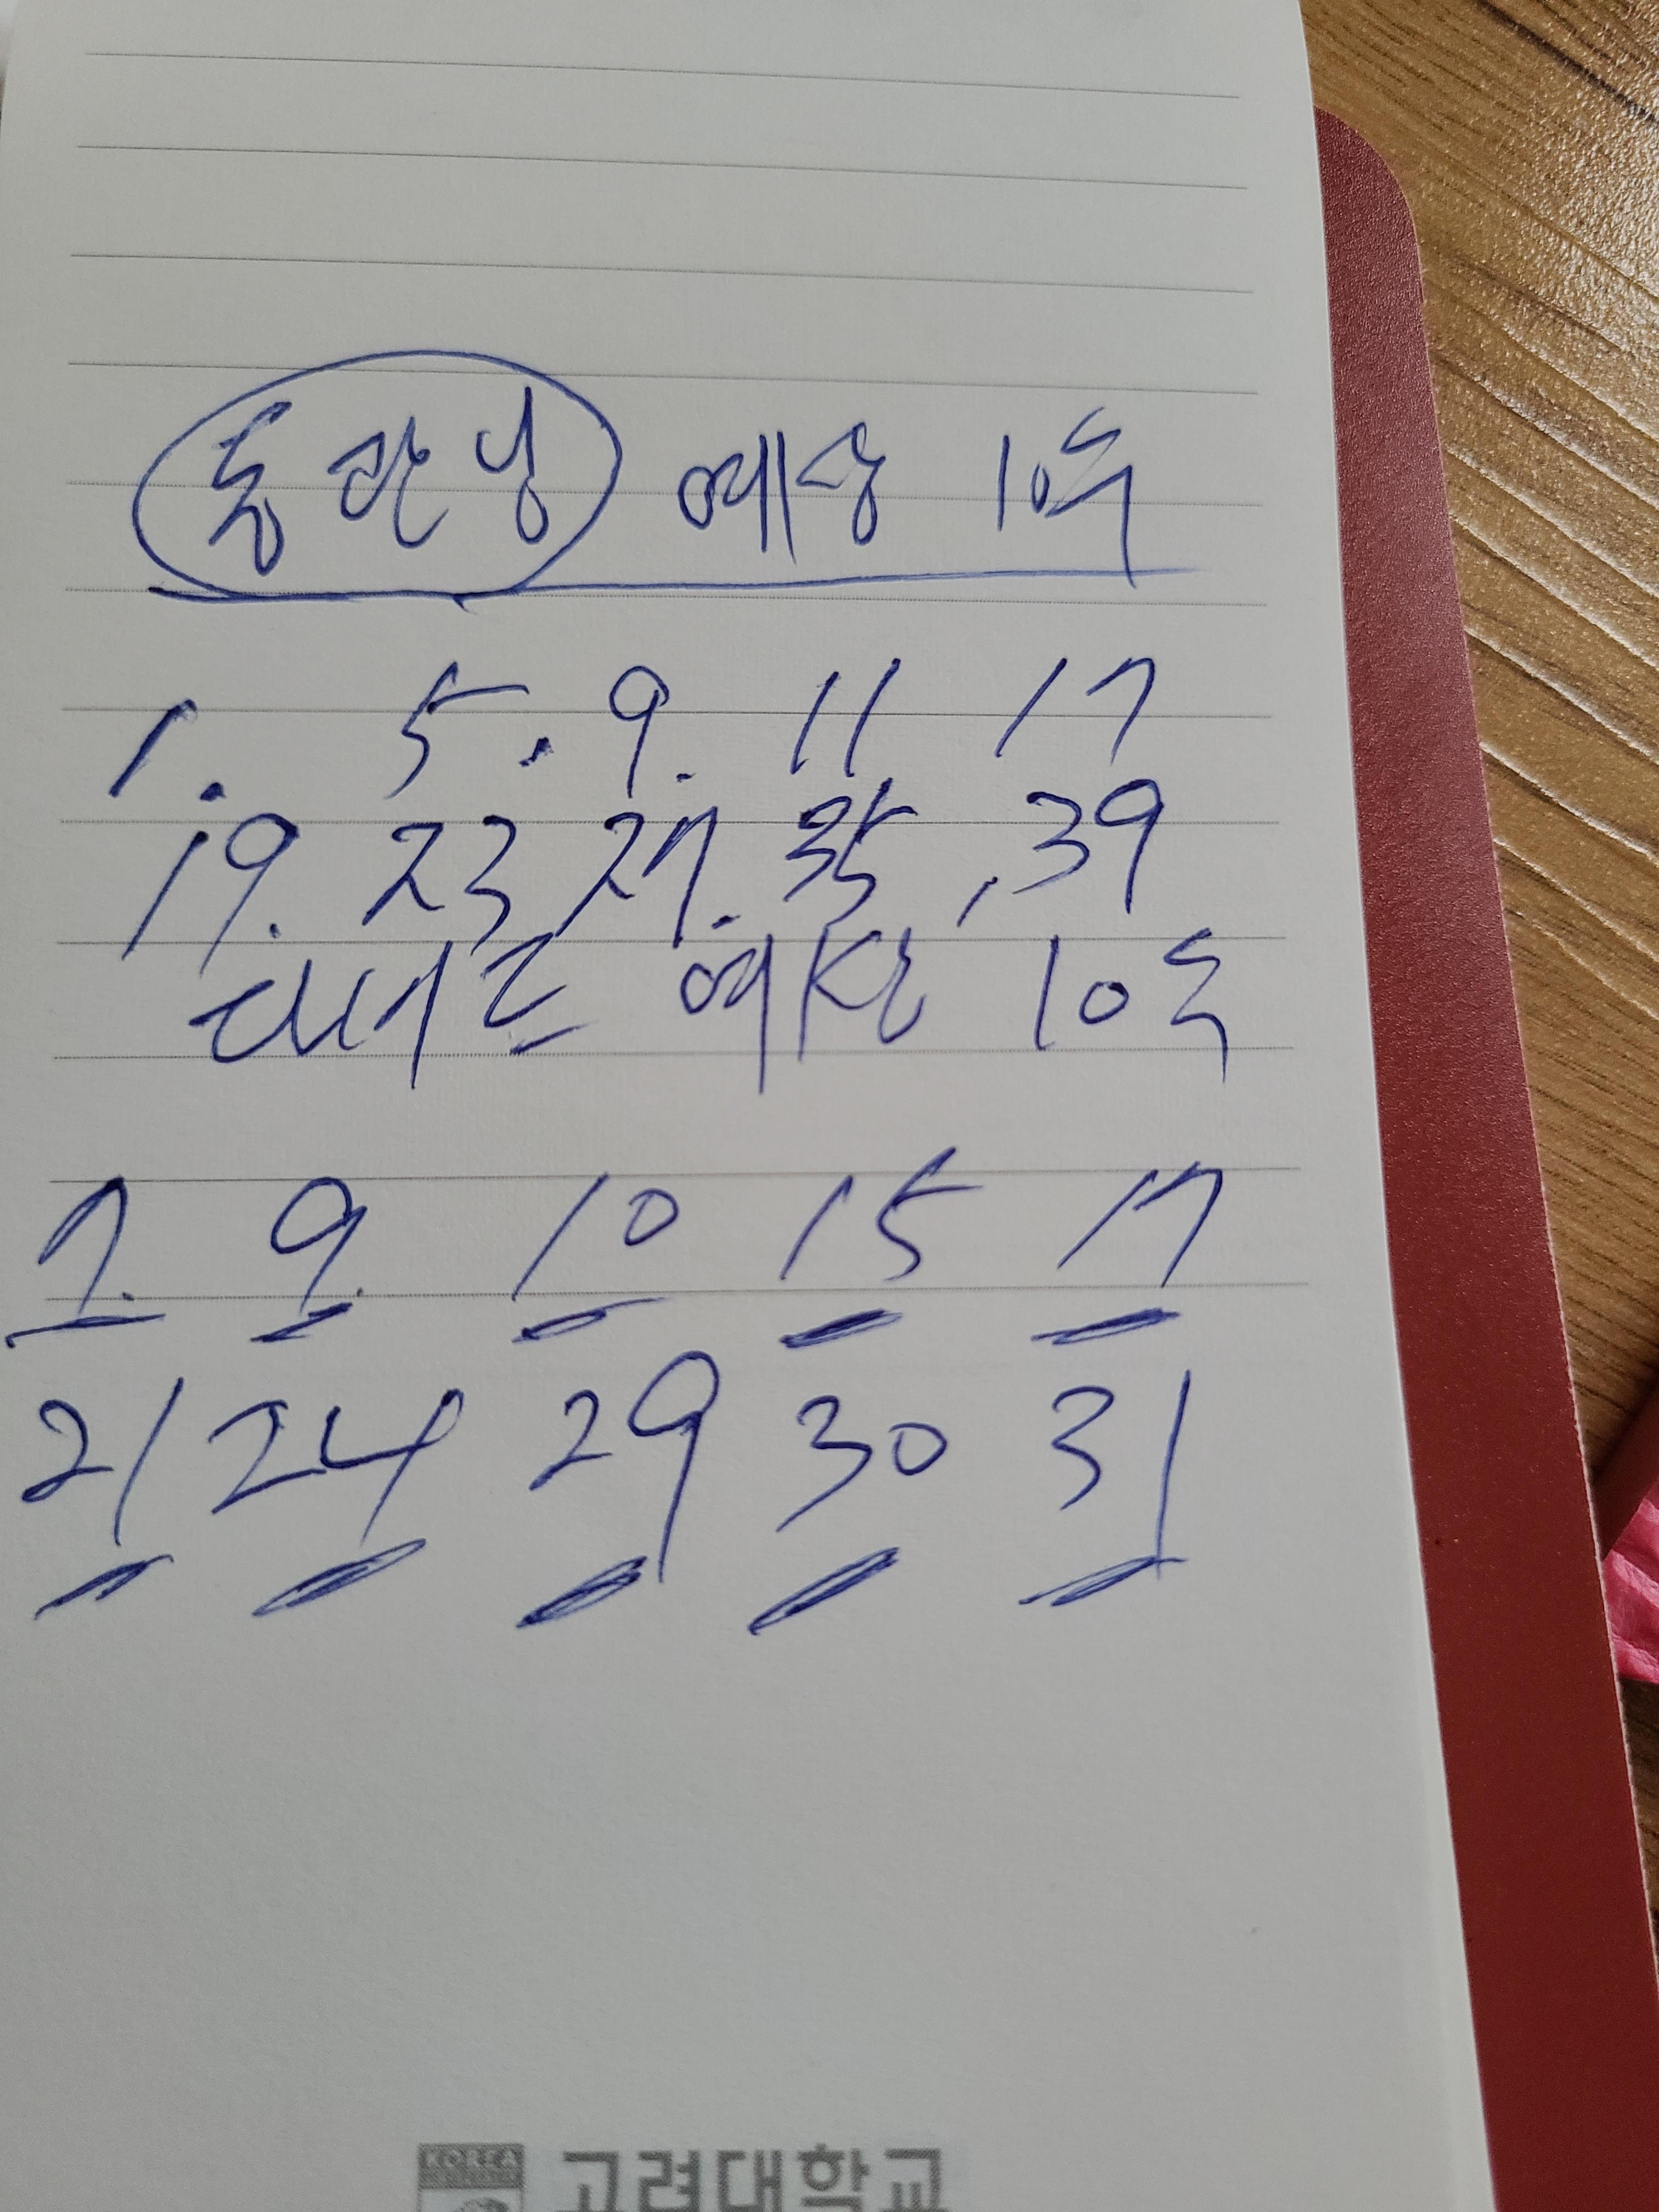 통관님 예상 10수
1. 5. 9. 11 17
19. 23 27. 35, 39
예상 10수
7. 9. 10 15 17
21 24 29 30 31
KOREA
고려대학교